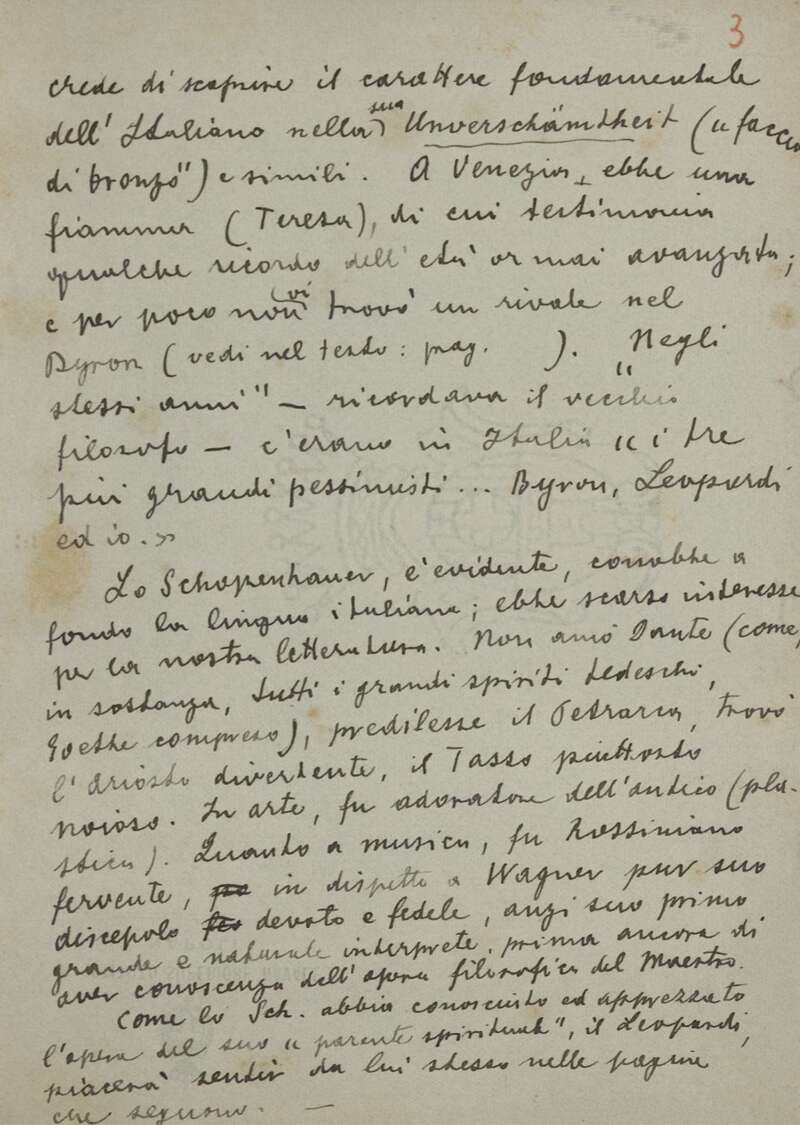 3
crede di scoprire il carattere fondamentale
dell'Italiano nella sua Unverschämtheit („faccia
di bronzo") e simili. A Venezia, ebbe una
fiamma (Teresa), di cui testimonia
qualche ricordo dell'età ormai avanzata;
e per poco non vi trovò un rivale nel
Byron (vedi nel testo: pag. ). „Negli
stessi anni" — ricordava il vecchio
filosofo — c'erano in Italia „i tre
più grandi pessimisti... Byron, Leopardi
ed io.»
Lo Schopenhauer, è evidente, conobbe a
fondo la lingua italiana; ebbe scarso interesse
per la nostra letteratura. Non amò Dante (come,
in sostanza, tutti i grandi spiriti tedeschi,
Goethe compreso), predilesse il Petrarca, trovò
l'Ariosto divertente, il Tasso piuttosto
noioso. In arte, fu adoratore dell'antico (pla-
stica). Quanto a musica, fu Rossiniano
fervente, in dispetto a Wagner pur suo
discepolo devoto e fedele, anzi suo primo
grande e naturale interprete, prima ancora di
aver conoscenza dell'opera filosofica del Maestro.
Come lo Sch. abbia conosciuto ed apprezzato
l'opera del suo „parente spirituale", il Leopardi,
piacerà sentir da lui stesso nelle pagine
che seguono. —